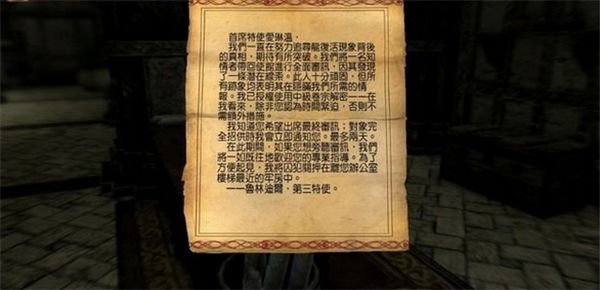 首席特使愛琳溫，
我們一直在努力追尋龍復活現象背後
的真相，期待有所突破。我們將一名知
情者帶回使館進行全面審訊，因其發現
了一條潛在線索。此人十分頑固，但所
有跡象均表明其在隱瞞我們所需的情
報。我已授權使用中板卷宗解密——在
我看來，除非您認為時間緊迫，否則不
需額外措施。
我知道您希望出席最終審訊；對象完
全招供時我會立即通知您。最多兩天。
在此期間，如果您想旁聽審訊，我們
將一如既往地歡迎您的專業指導。為了
方便起見，我將囚犯關押在離您辦公室
樓梯最近的牢房中。
——魯林迪爾，第三特使。